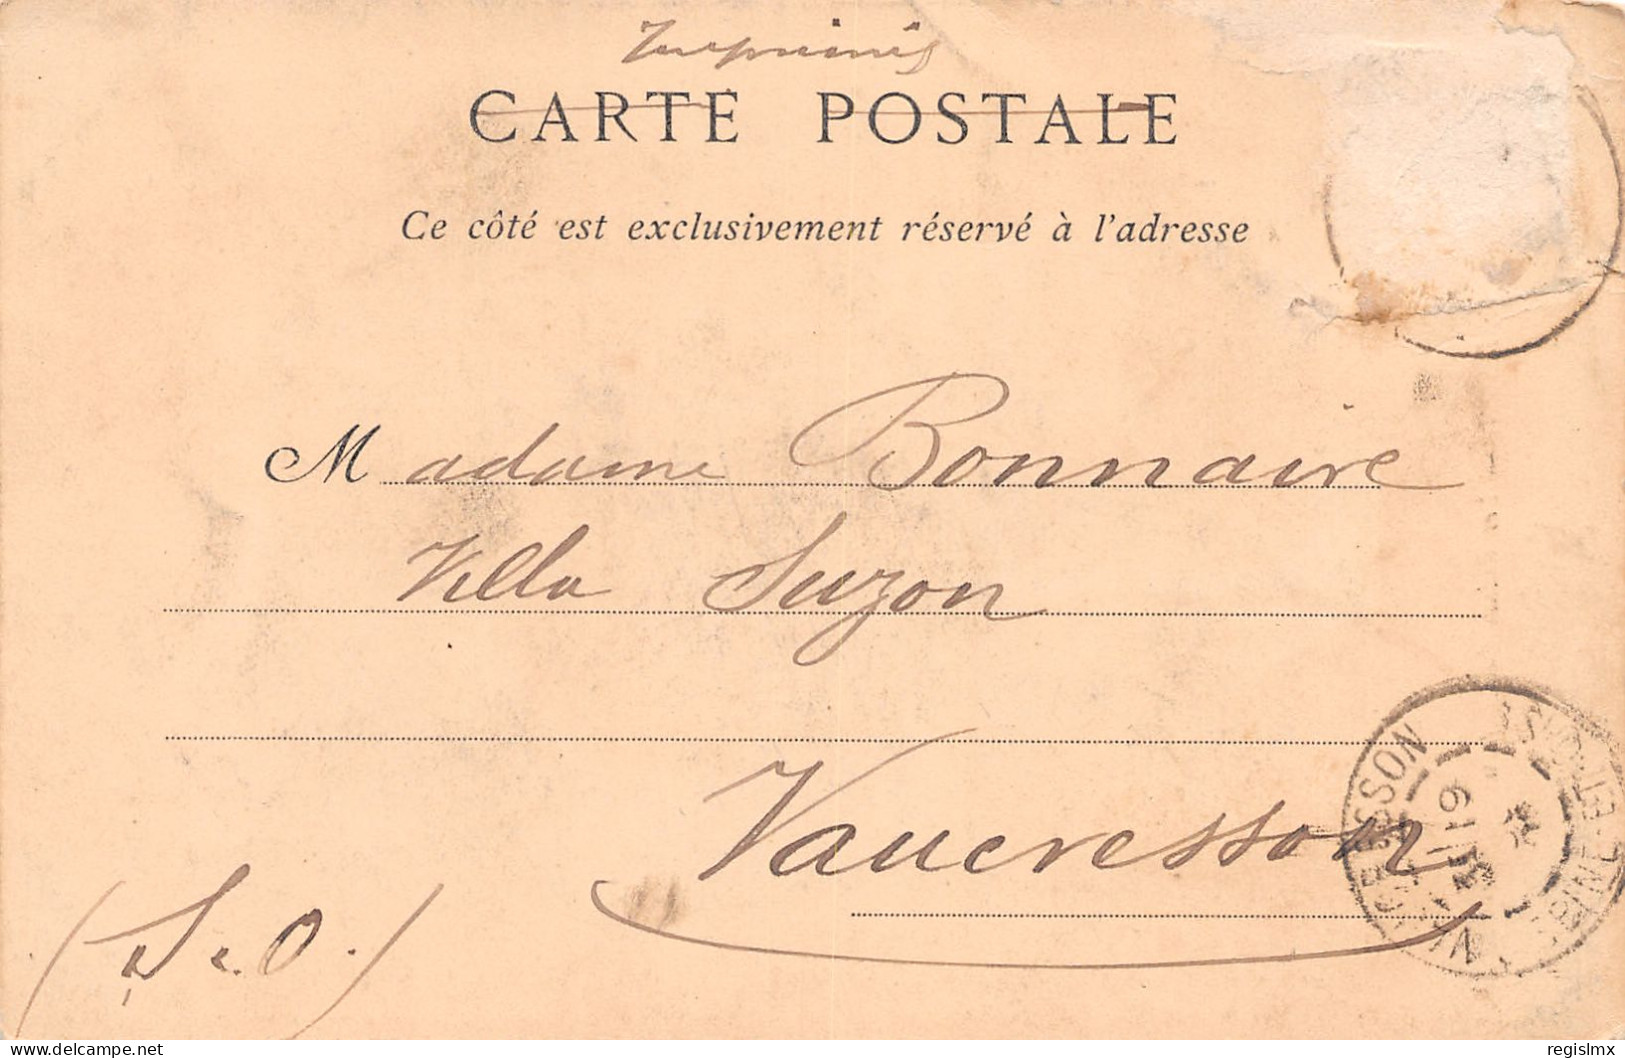 Imprimés
CARTE POSTALE
Ce côté est exclusivement réservé à l'adresse
Madame Bonnaire
Villa Suzon
Vaucresson
(S. et O.)
VAUCRESSON
SEINE-ET-OISE
delcampe.net
regislmx